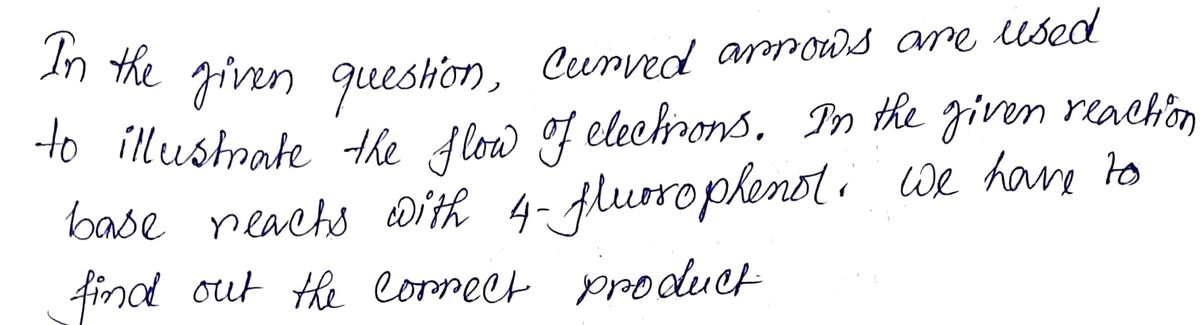 In the given question, Curved arrows are used
to illustrate the flow of electrons. In the given reaction
base reacts with 4-fluorophenol. We have to
find out the correct product